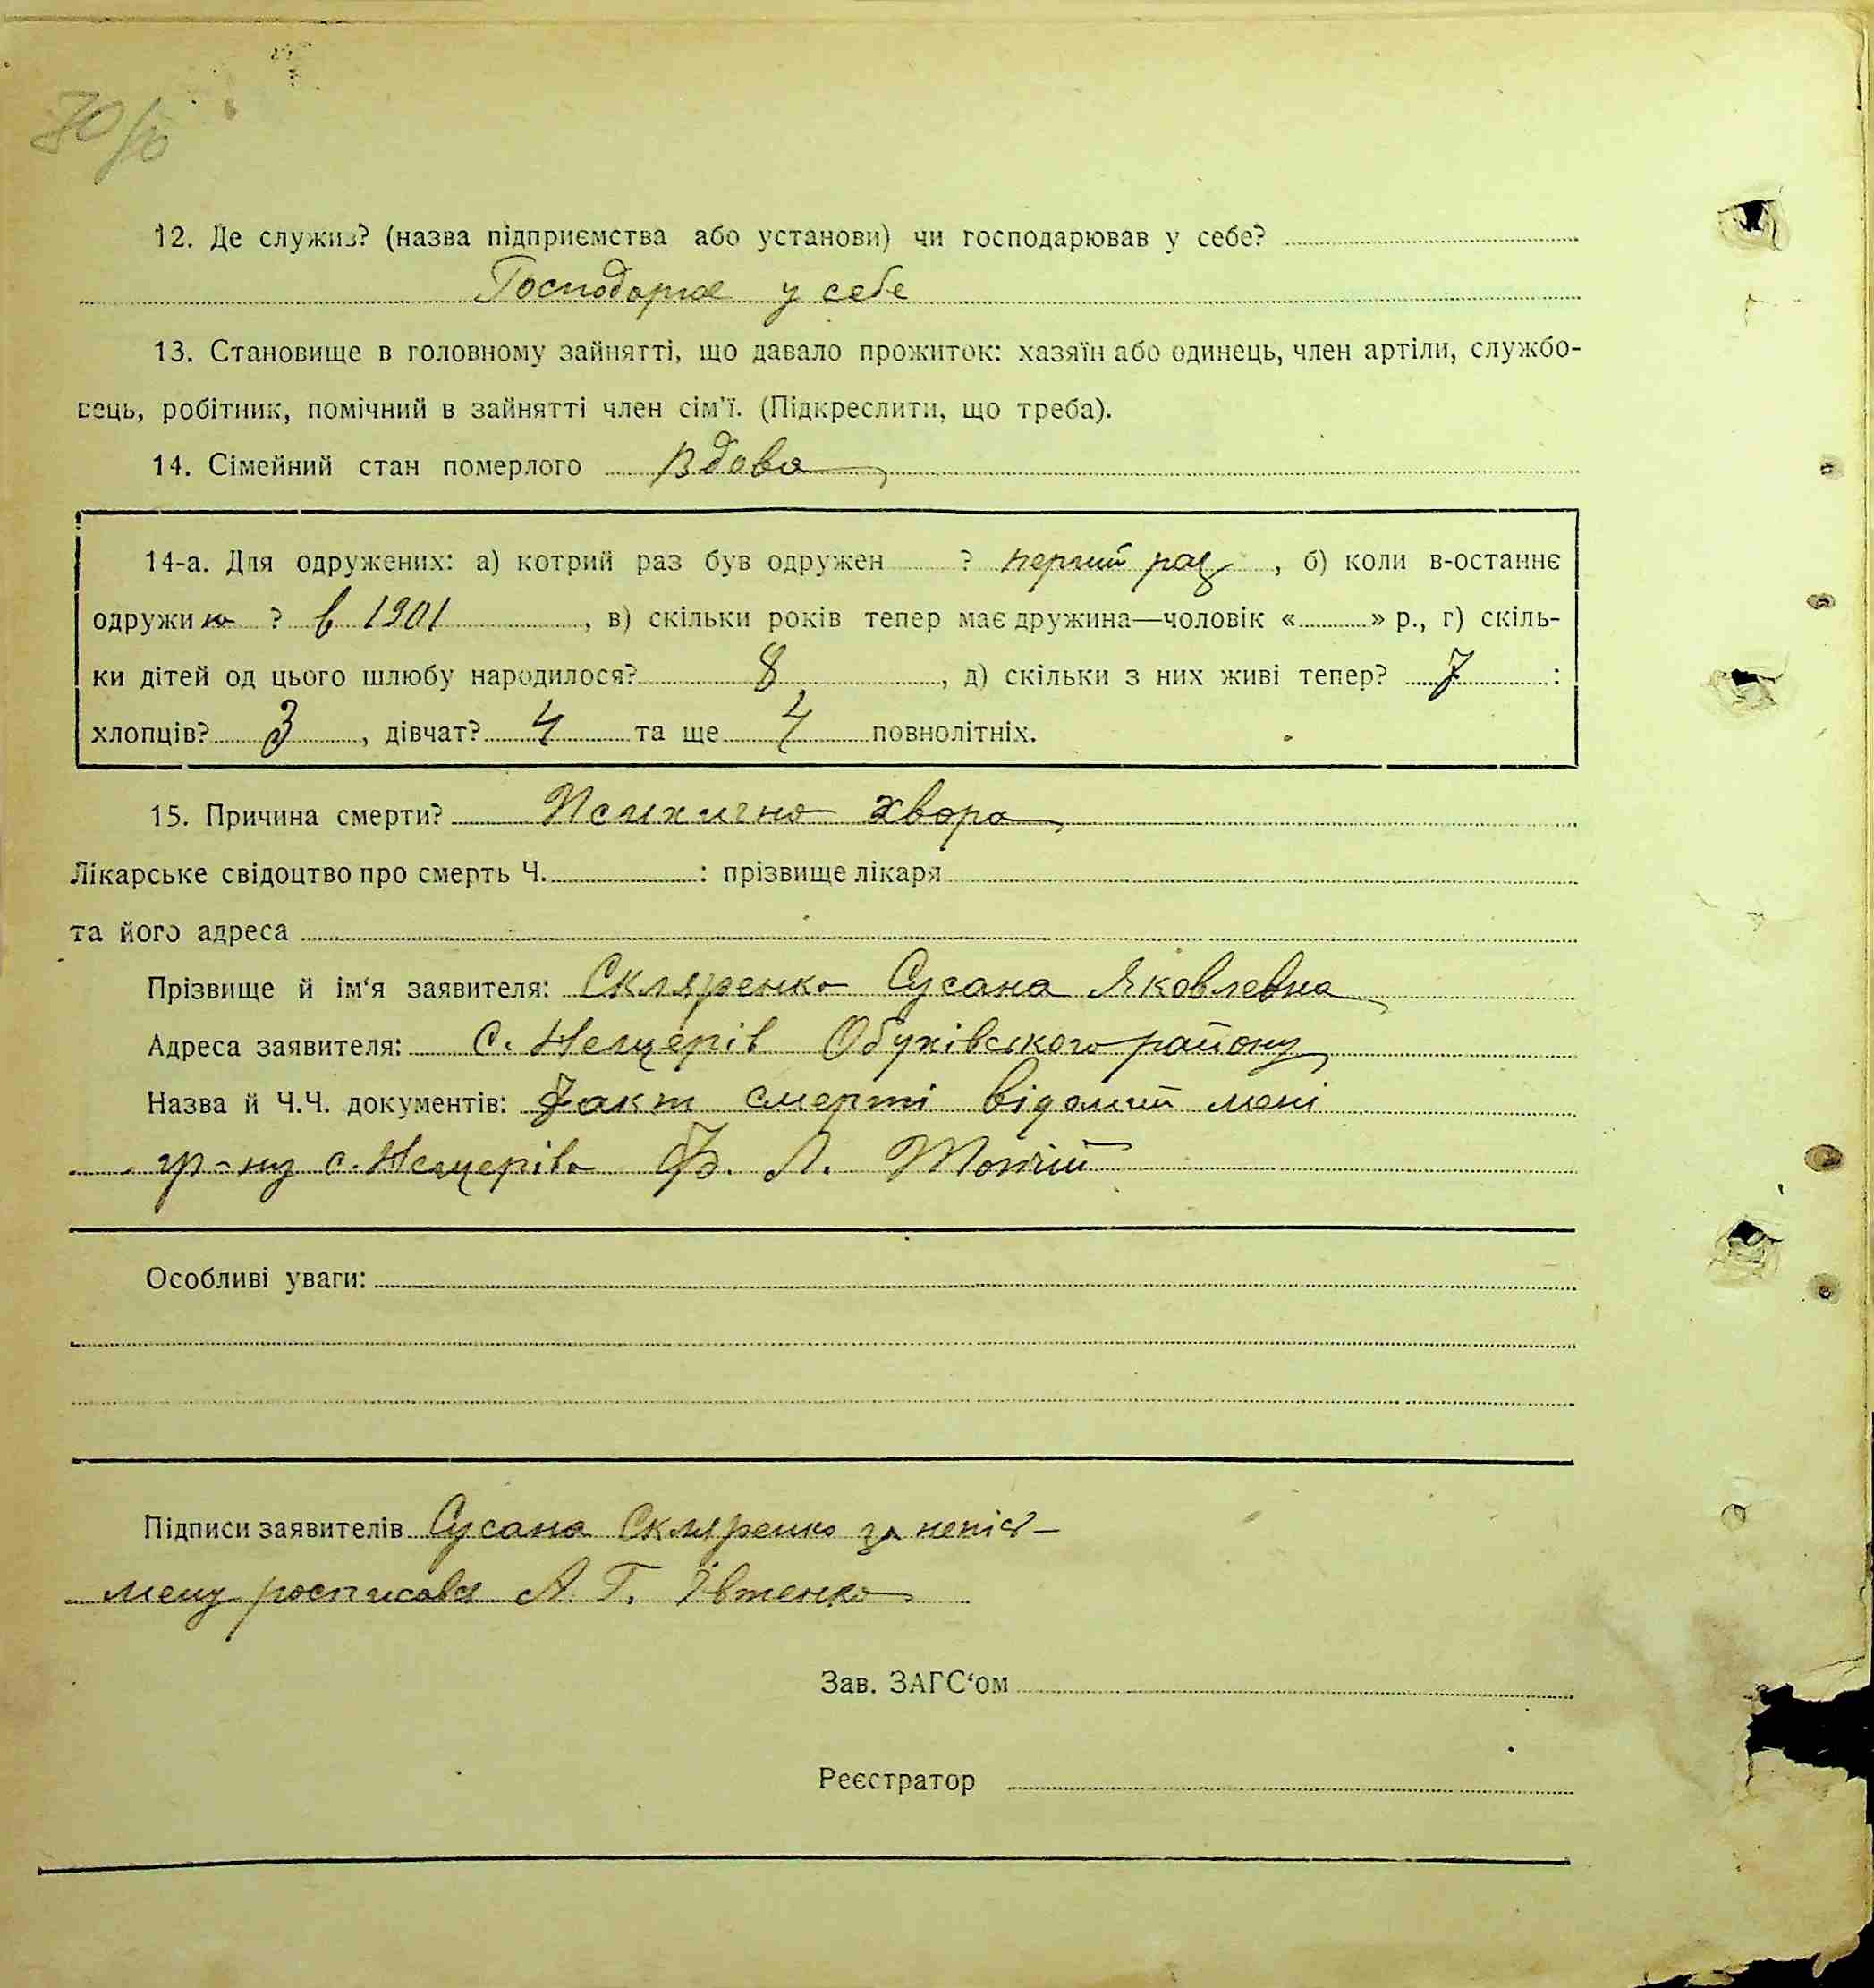 12. Де служив? (назва підприємства або установи) чи господарював у себе?
Господарює у себе
13. Становище в головному зайнятті, що давало прожиток: хазяїн або одинець, член артіли, службо-
вець, робітник, помічний в зайнятті член сім'ї. (Підкреслити, що треба).
14. Сімейний стан померлого вдова
14-а. Для одружених: а) котрий раз був одружен ? перший раз, б) коли в-останнє
одружи ? в 1901, в) скільки років тепер має дружина—чоловік « » р., г) скіль-
ки дітей од цього шлюбу народилося? 8, д) скільки з них живі тепер? 7 :
хлопців? 3, дівчат? 4 та ще 4 повнолітніх.
15. Причина смерти? Психично хвора
Лікарське свідоцтво про смерть Ч. : прізвище лікаря
та його адреса
Прізвище й ім'я заявителя: Скляренко Сусана Яковлевна
Адреса заявителя: С. Нещерів Обухівського району
Назва й Ч.Ч. документів: Факт смерті відомий мені
гр-ну с. Нещерів Ф. Л.
Особливі уваги:
Підписи заявителів Сусана Скляренко за непісь-
мену росписався А. Г. Івтенко
Зав. ЗАГС'ом
Реєстратор